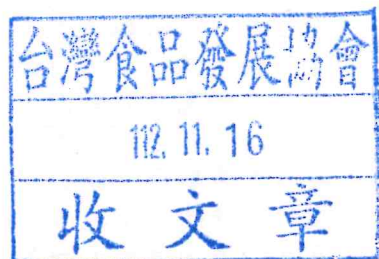 台灣食品發展協會
112. 11. 16
收文章